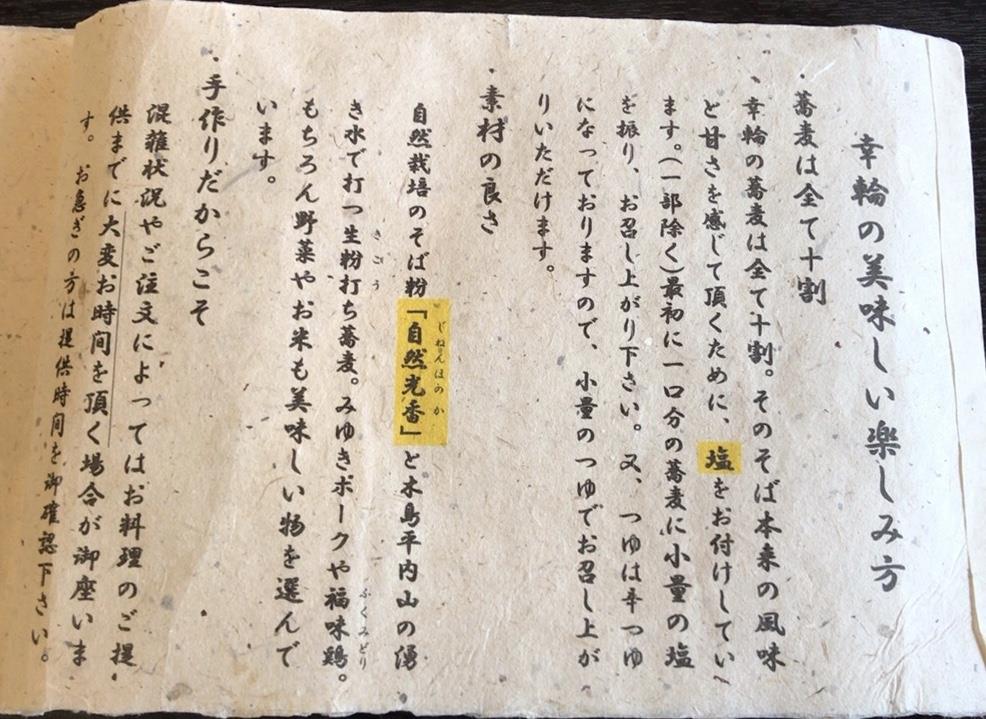 幸輪の美味しい楽しみ方
・蕎麦は全て十割
幸輪の蕎麦は全て十割。そのそば本来の風味
と甘さを感じて頂くために、塩をお付けしてい
ます。(一部除く)最初に一口分の蕎麦に小量の塩
を振り、お召し上がり下さい。又、つゆは辛つゆ
になっておりますので、小量のつゆでお召し上が
りいただけます。
・素材の良さ
自然栽培のそば粉「自然光香」と木島平内山の湧
じねんほのか
き水で打つ生粉打ち蕎麦。みゆきポークや福味鶏。
きこう
ふくみどり
もちろん野菜やお米も美味しい物を選んで
います。
・手作りだからこそ
混雑状況やご注文によってはお料理のご提
供までに大変お時間を頂く場合が御座いま
す。お急ぎの方は提供時間を御確認下さい。